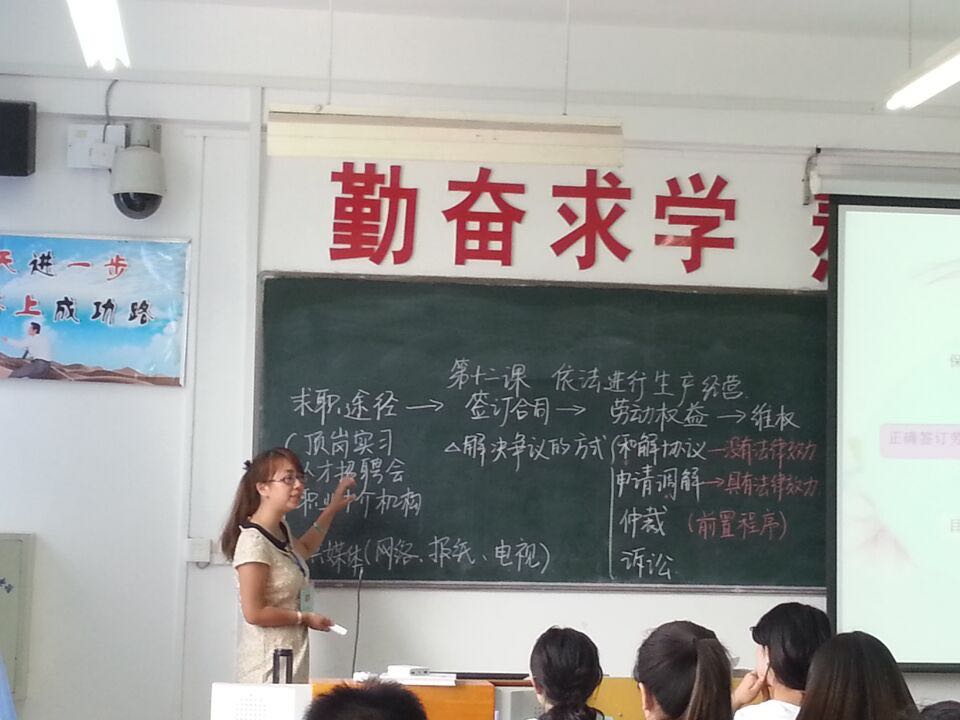 勤奋求学
天进一步
上成功路
第十二课 依法进行生产经营
求职途径→签订合同→劳动权益→维权
顶岗实习
人才招聘会
职业中介机构
媒体(网络、报纸、电视)
△解决争议的方式
和解协议—没有法律效力
申请调解→具有法律效力
仲裁 (前置程序)
诉讼
保
正确签订劳
目